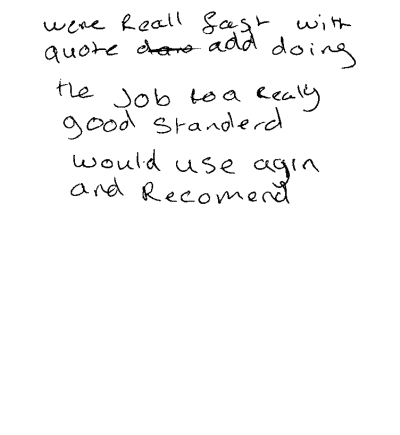 were Reall fast with
quote add doing
the Job to a Realy
good Standerd
would use agin
and Recomend